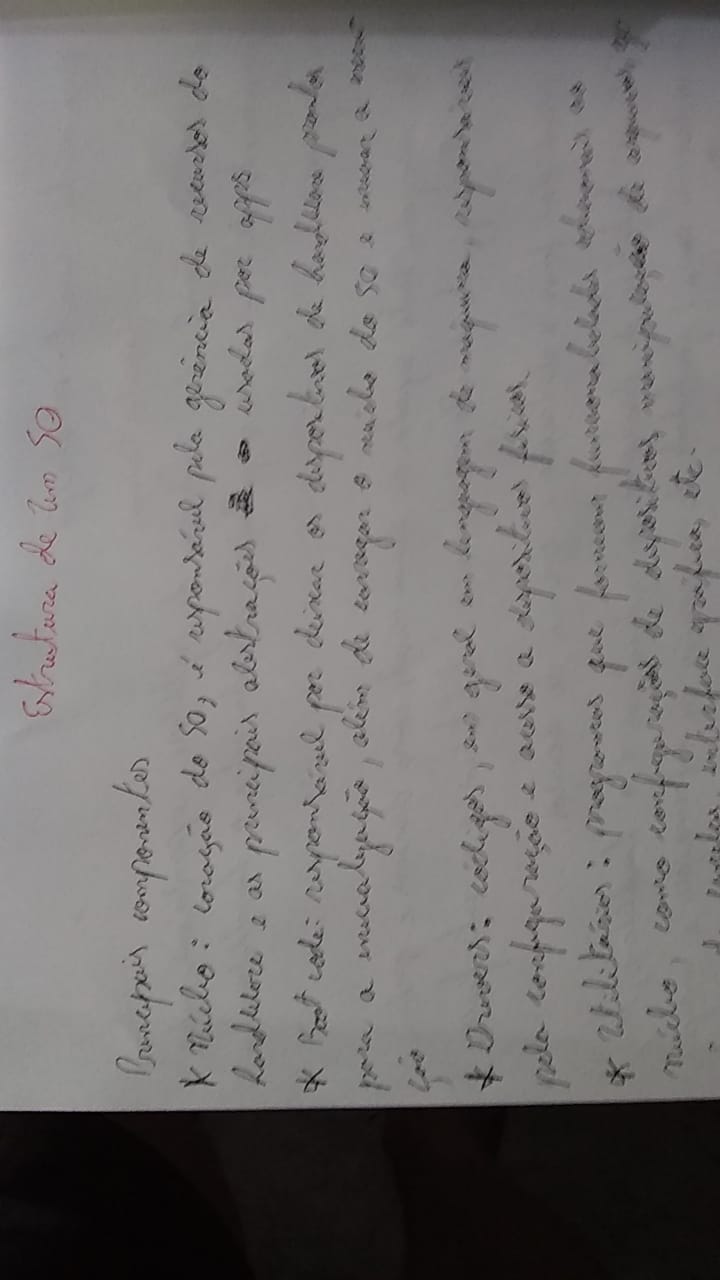 Estrutura de um SO
Principais componentes
* Núcleo: coração do SO, é responsável pela gerência de recursos do
hardware e as principais abstrações usadas por apps
* Boot code: responsável por deixar os dispositivos de hardware prontos
para a inicialização, além de carregar o núcleo do SO e iniciar a
ção
* Drivers: códigos, em geral em linguagem de máquina, responsáveis
pela configuração e acesso a dispositivos físicos.
* Utilitários: programas que fornecem funcionalidades adicionais ao
núcleo, como configurações de dispositivos, manipulação de arquivos,
interface gráfica, etc.